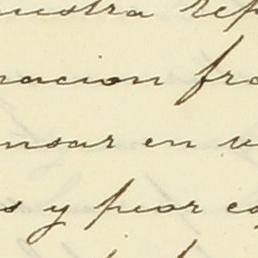 uestra rep
nacion fra
nsar en u
s y peor co